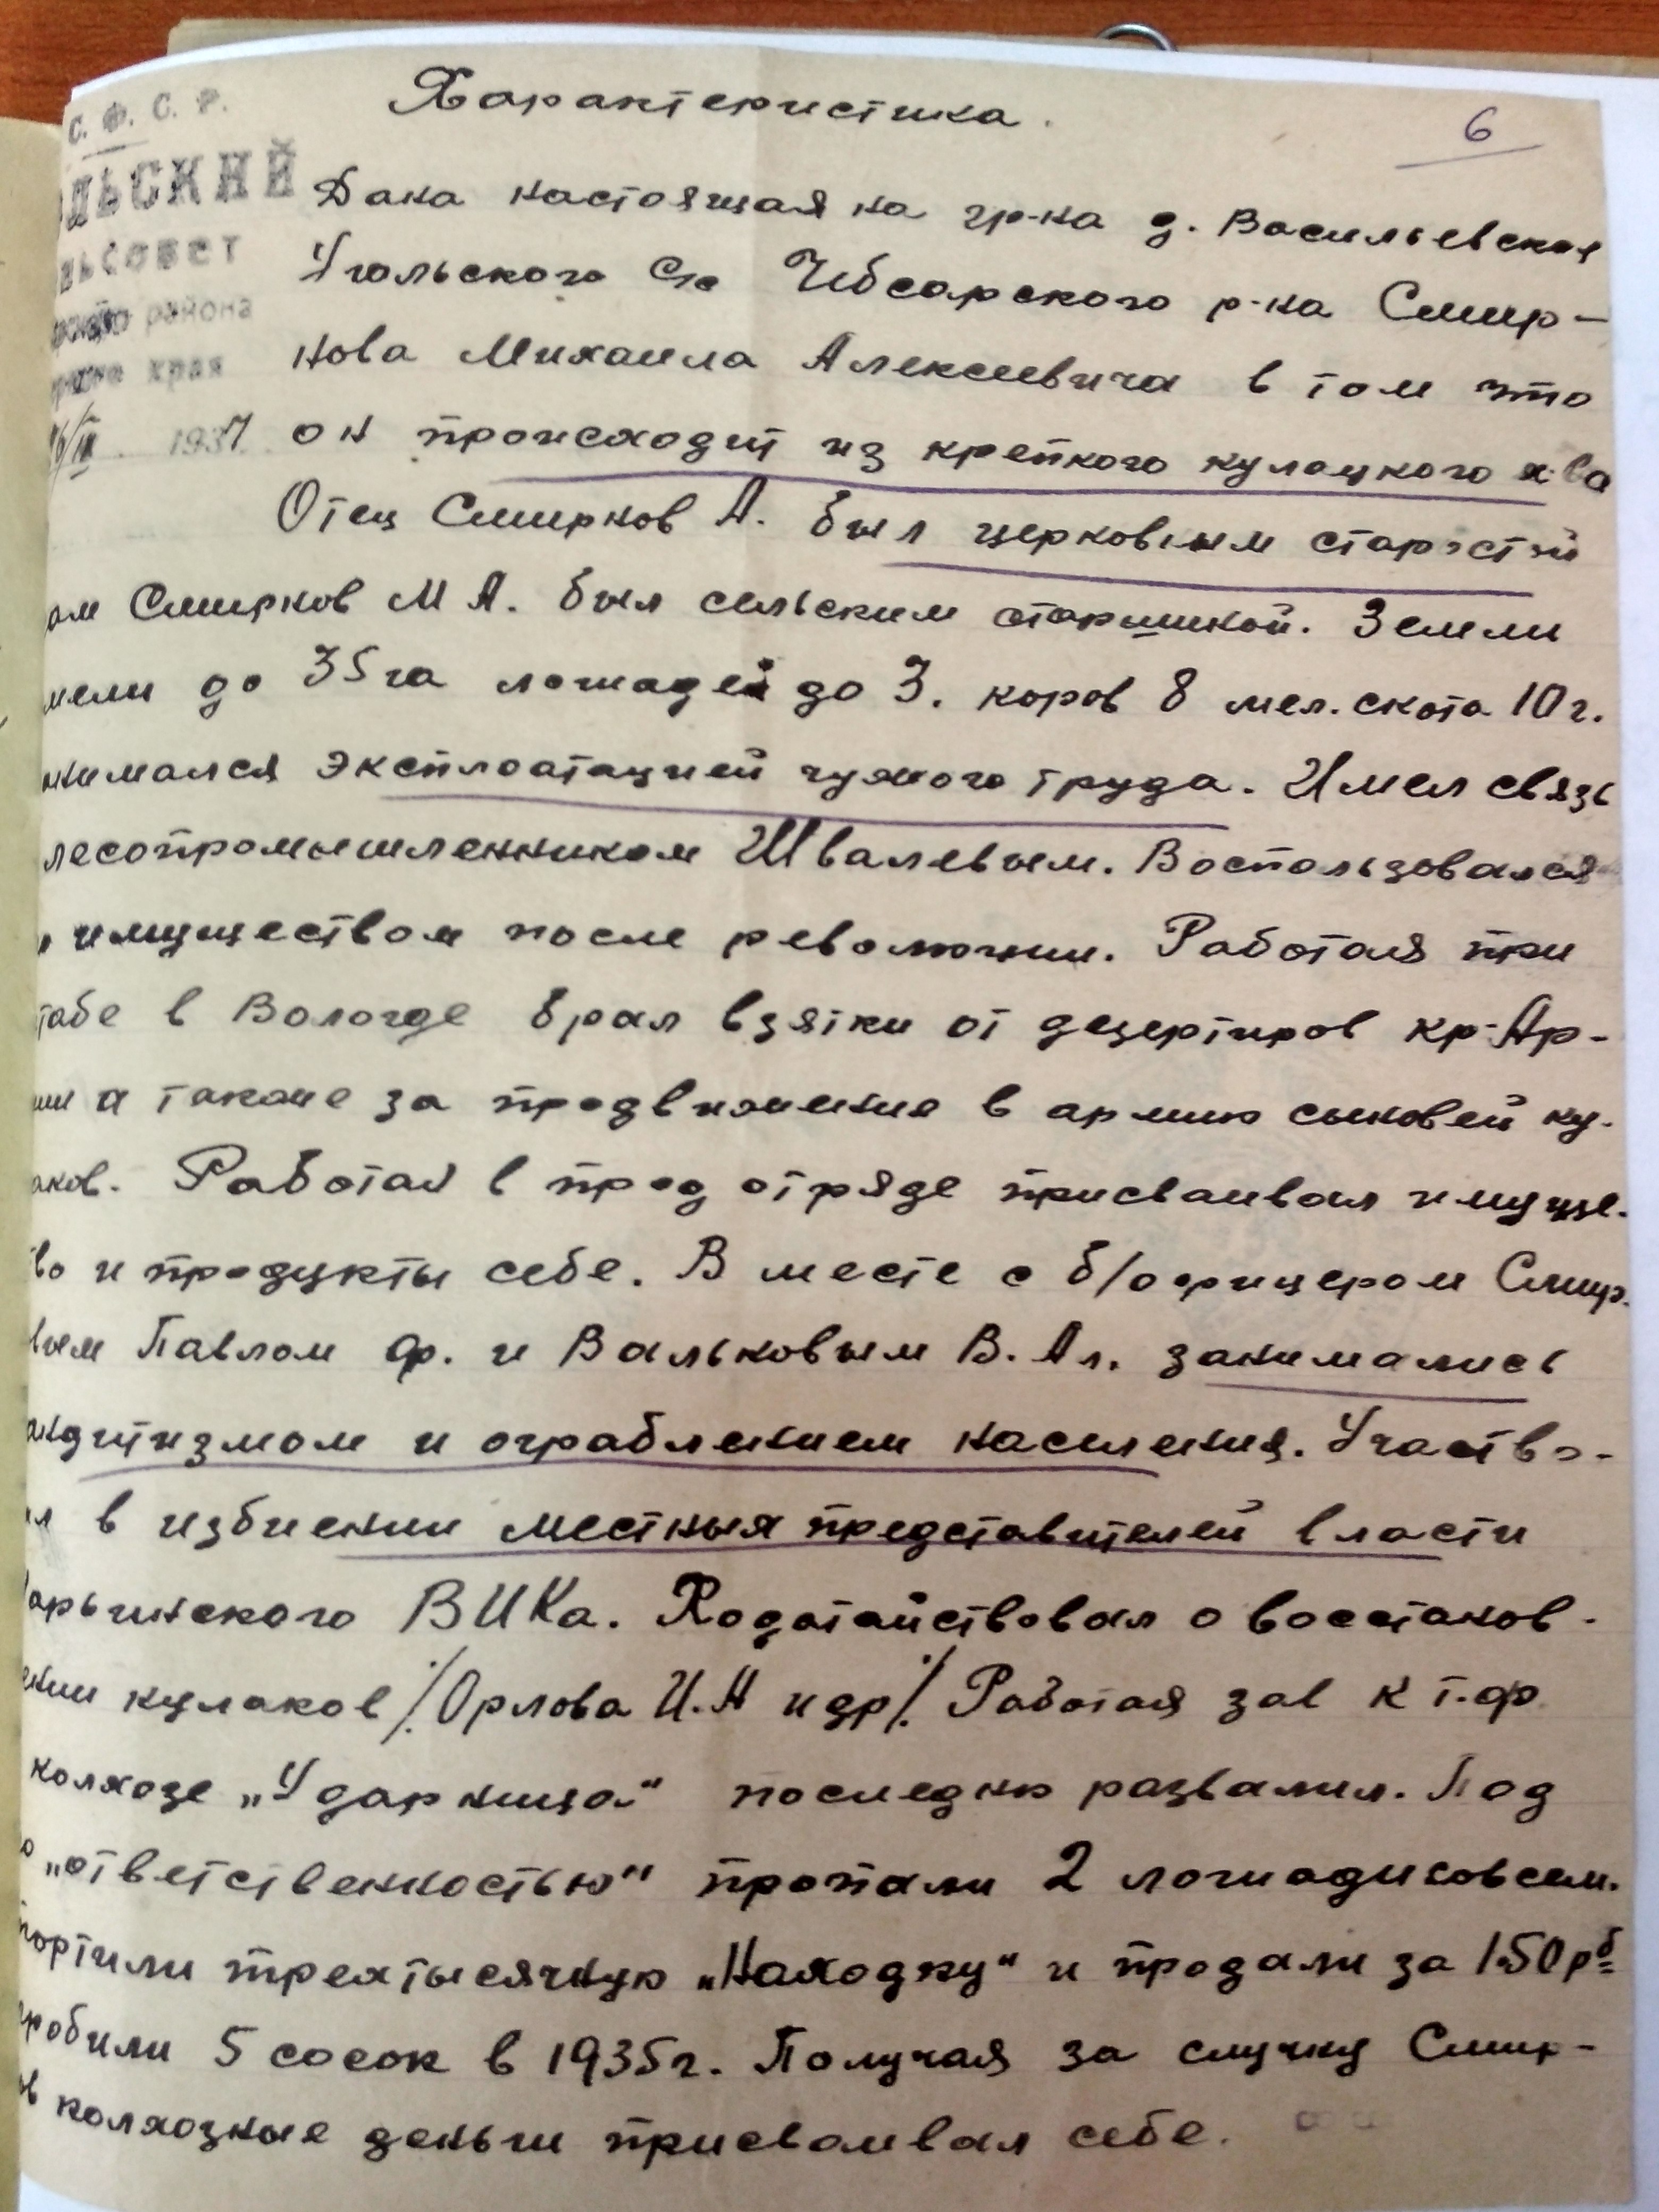 Характеристика.
6
С. Ф. С. Р.
ОЛЬСКИЙ
ЛЬСОВЕТ
района
края
16/IX 1937
Дана настоящая на гр-на д. Васильевское
Угольского С/с Чебсарского р-на Смир-
нова Михаила Алексеевича в том что
он происходит из крепкого кулацкого х-ва
Отец Смирнов А. был церковным старостой
ам Смирнов М А. был сельским старшиной. Земли
мели до 35 га лошадей до 3. коров 8 мел. скота 10 г.
анимался эксплоатацией чужого труда. Имел связь
лесопромышленником Швалевым. Воспользовался
имуществом после революции. Работая при
табе в Вологде брал взятки от дезертиров кр-Ар-
ии а также за продвижение в армию сыновей ку-
аков. Работая в прод отряде присваивал имуще-
во и продукты себе. В месте с б/офицером Смир-
вым Павлом Ф. и Вальковым В. Ал. занимались
андитизмом и ограблением населения. Участво-
ал в избиении местных представителей власти
арьинского ВИКа. Ходотайствовал о восстанов-
ении кулаков /Орлова И.А и др/. Работая зав К т.ф
колхозе „Ударница“ последню развалил. Под
о „ответственностью“ пропали 2 лошади совсем.
портили трехтысячную „Находку“ и продали за 150 рб
гробили 5 сосок в 1935 г. Получая за случку Смир-
ов колхозные деньги присваивал себе.